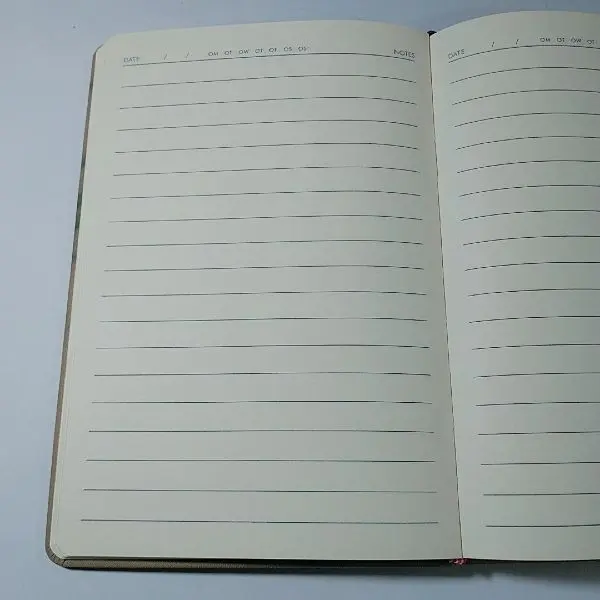 DATE / / OM OT OW OT OF OS OS NOTES
DATE / / OM OT OW OT